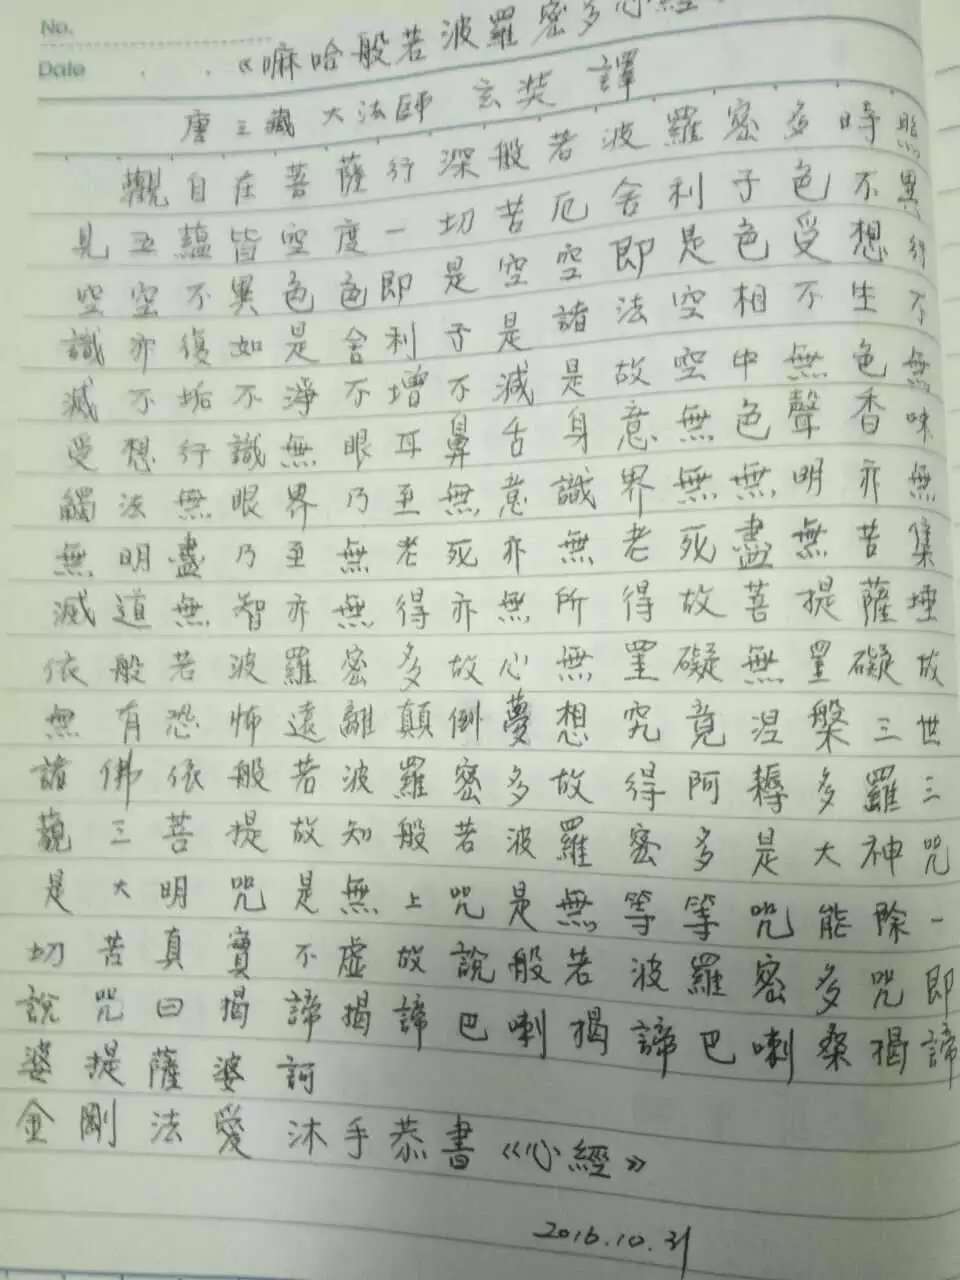 No.
Date
《嘛哈般若波羅密多心經
唐三藏大法師 玄奘 譯
觀自在菩薩行深般若波羅密多時照
見五蘊皆空度一切苦厄舍利子色不異
空空不異色色即是空空即是色受想行
識亦復如是舍利子是諸法空相不生不
滅不垢不淨不增不減是故空中無色無
受想行識無眼耳鼻舌身意無色聲香味
觸法無眼界乃至無意識界無無明亦無
無明盡乃至無老死亦無老死盡無苦集
滅道無智亦無得亦無所得故菩提薩埵
依般若波羅密多故心無罣礙無罣礙故
無有恐怖遠離顛倒夢想究竟涅槃三世
諸佛依般若波羅密多故得阿耨多羅三
藐三菩提故知般若波羅密多是大神咒
是大明咒是無上咒是無等等咒能除一
切苦真實不虛故說般若波羅密多咒即
說咒曰揭諦揭諦巴喇揭諦巴喇桑揭諦
婆提薩婆訶
金剛法愛沐手恭書《心經》
2016.10.31